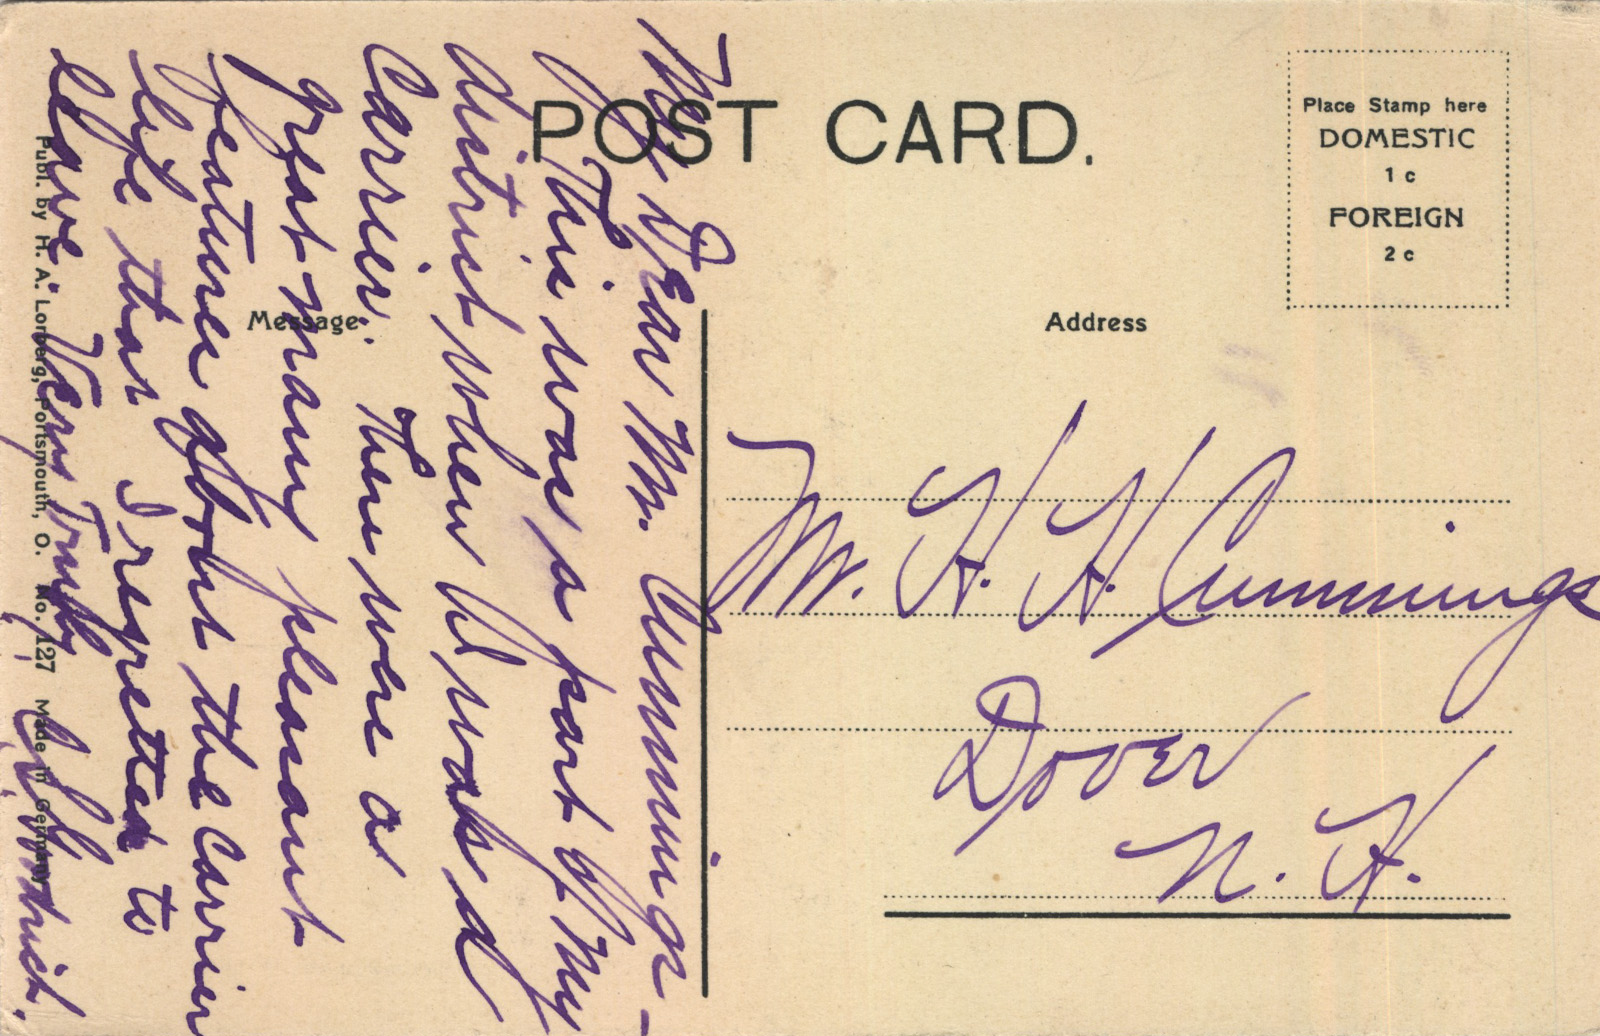 POST CARD.
Place Stamp here
DOMESTIC
1 c
FOREIGN
2 c
Message
Address
My Dear Mr. Cummings -
This was a part of my
district when I was a
Carrier. There were a
great many pleasant
features about the Carrier
life that I regretted to
leave. Very Truly
Mr. H. H. Cummings
Dover
N. H.
Publ. by H. A. Lorberg, Portsmouth, O. No. 127 Made in Germany